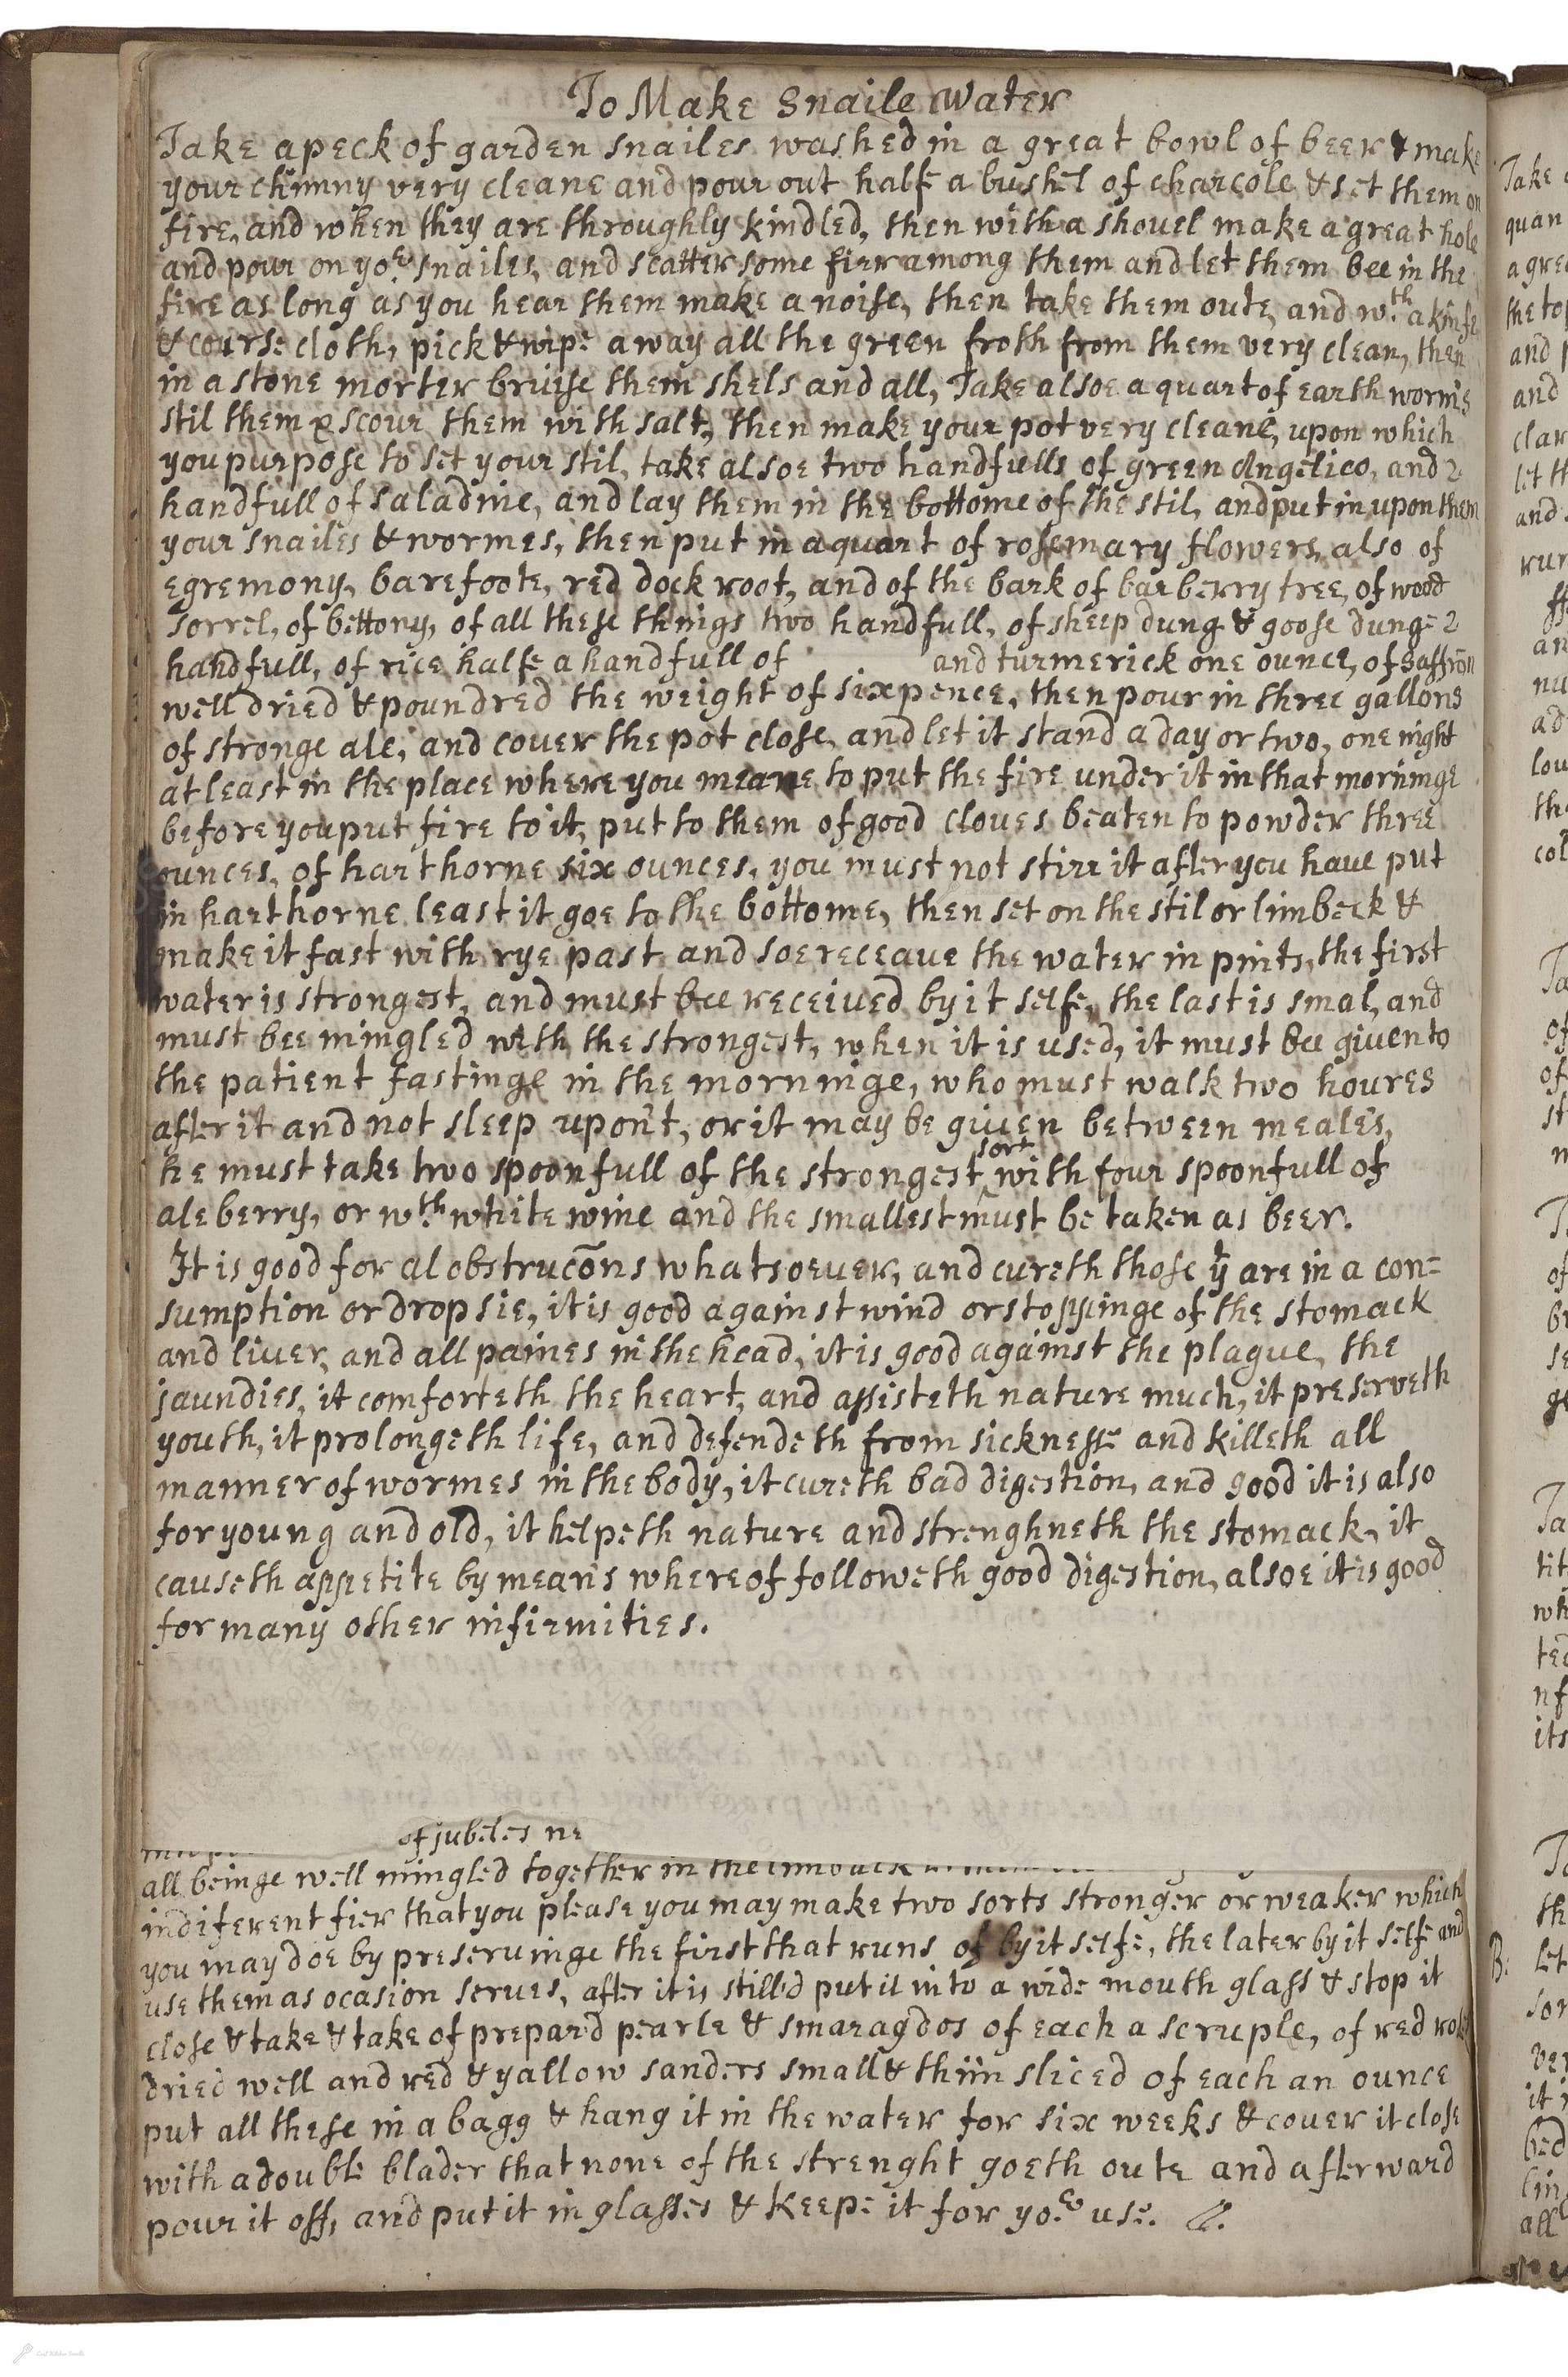 To Make Snaile Water
Take a peck of garden snailes washed in a great bowl of beer & make
your chimny very cleane and pour out halfe a bushel of charcole & set them on
fire, and when they are throughly kindled, then with a shovel make a great hole
and pour on yo.r snailes, and scatter some fier among them and let them bee in the
fire as long as you hear them make a noise, then take them oute, and w.th a knife
& course cloth, pick & wipe away all the green froth from them very clean, then
in a stone morter bruise them shels and all, Take alsoe a quart of earth worms
slit them & scour them with salt, then make your pot very cleane, upon which
you purpose to set your stil, take alsoe two handfulls of green Angelico, and 2
handfull of saladine, and lay them in the bottome of the stil, and put in upon them
your snailes & wormes, then put in a quart of rosemary flowers, also of
egremony, barefoote, red dock root, and of the bark of barberry tree, of wood
sorrel, of bettony, of all these things two handfull, of sheep dung & goose dunge 2
handfull, of rice halfe a handfull of and turmerick one ounce, of saffron
well dried & poundred the weight of sixpence, then pour in three gallons
of stronge ale, and couer the pot close, and let it stand a day or two, one night
at least in the place where you meane to put the fire under it in that morninge
before you put fire to it, put to them of good cloues beaten to powder three
ounces, of harthorne six ounces, you must not stirr it after you haue put
in harthorne least it goe to the bottome, then set on the stil or limbeck &
make it fast with rye past and soe receaue the water in pints, the first
water is strongest, and must bee receiued by it selfe, the last is smal, and
must bee mingled with the strongest, when it is used, it must bee giuen to
the patient fastinge in the morninge, who must walk two houres
after it and not sleep upon't, or it may be giuen between meales,
he must take two spoonfull of the strongest sort with four spoonfull of
aleberry, or w.th white wine and the smallest must be taken as beer.
It is good for al obstrucōns whatsoeuer, and cureth those yt are in a con=
sumption or dropsie, it is good against wind or stoppinge of the stomack
and liuer, and all paines in the head, it is good against the plague, the
jaundies, it comforteth the heart, and assisteth nature much, it preserveth
youth, it prolongeth life, and defendeth from sicknesse and killeth all
manner of wormes in the body, it cureth bad digestion, and good it is also
for young and old, it helpeth nature and strenghneth the stomack, it
causeth appetite by means whereof followeth good digestion, alsoe it is good
for many other infirmities.
of jubeles ne
all beinge well mingled together in the
indiferent fier that you please you may make two sorts stronger or weaker which
you may doe by preseruinge the first that runs of by it selfe, the later by it selfe and
use them as ocasion serues, after it is still'd put it in to a wide mouth glass & stop it
close & take & take of prepar'd pearle & smaragdos of each a scruple, of red
dried well and red & yallow sanders small & thin sliced of each an ounce
put all these in a bagg & hang it in the water for six weeks & couer it close
with a double blader that none of the strenght goeth oute and afterward
pour it off, and put it in glasses & keepe it for yo.r use.